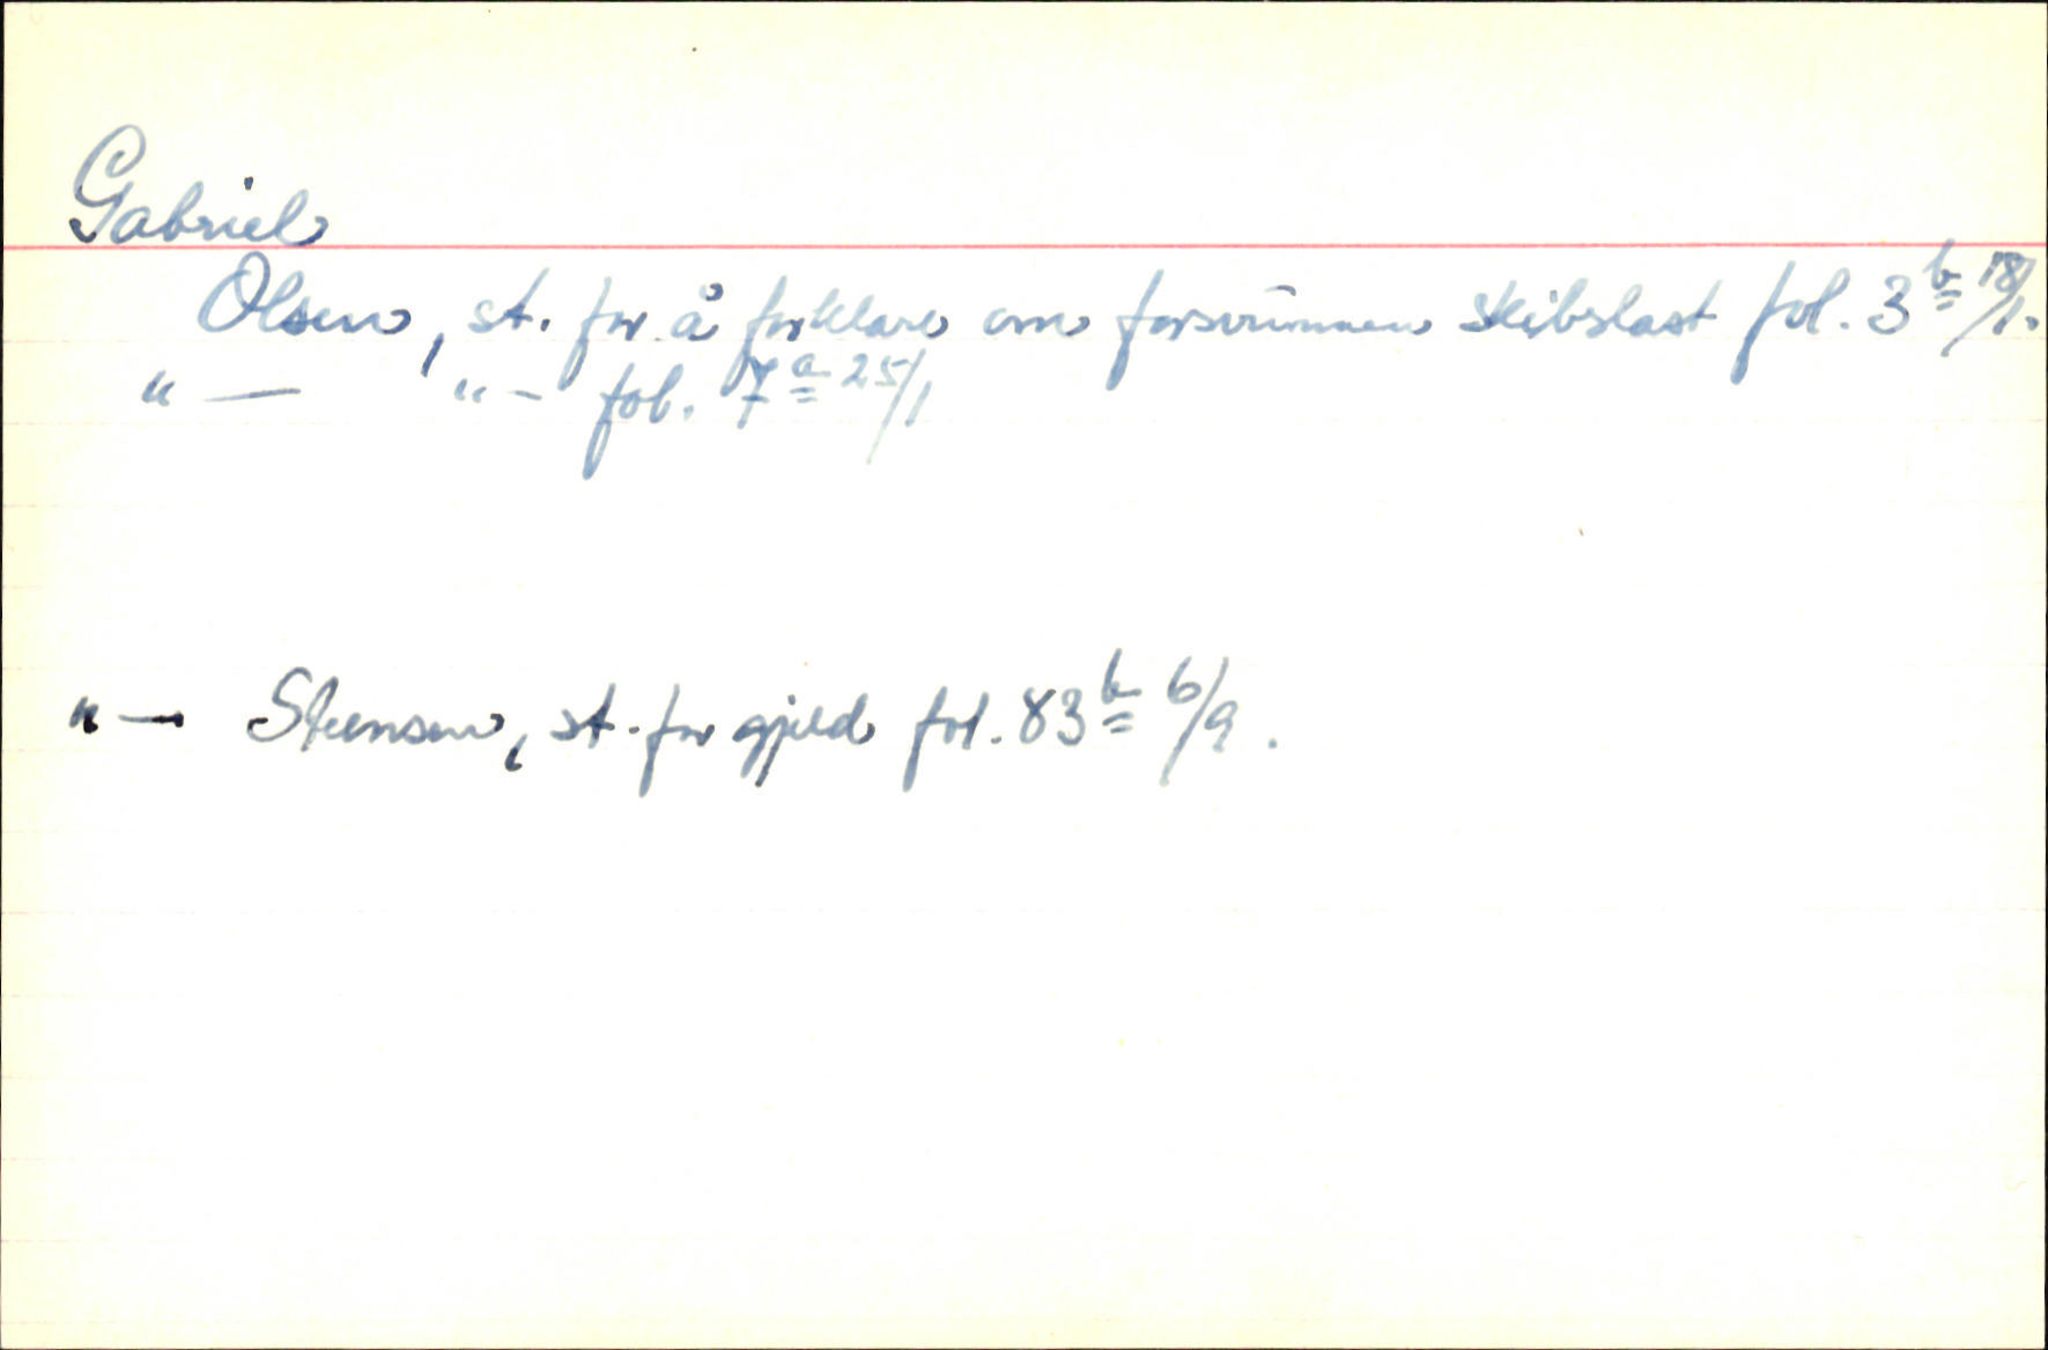 Gabriel
Olsen, st. for å forklare om forsvunnen skibslast fol. 3 b 18/1.
" — " — fol. 7 a 25/1
" — Steensen, st. for gjeld fol. 83 b 6/9.